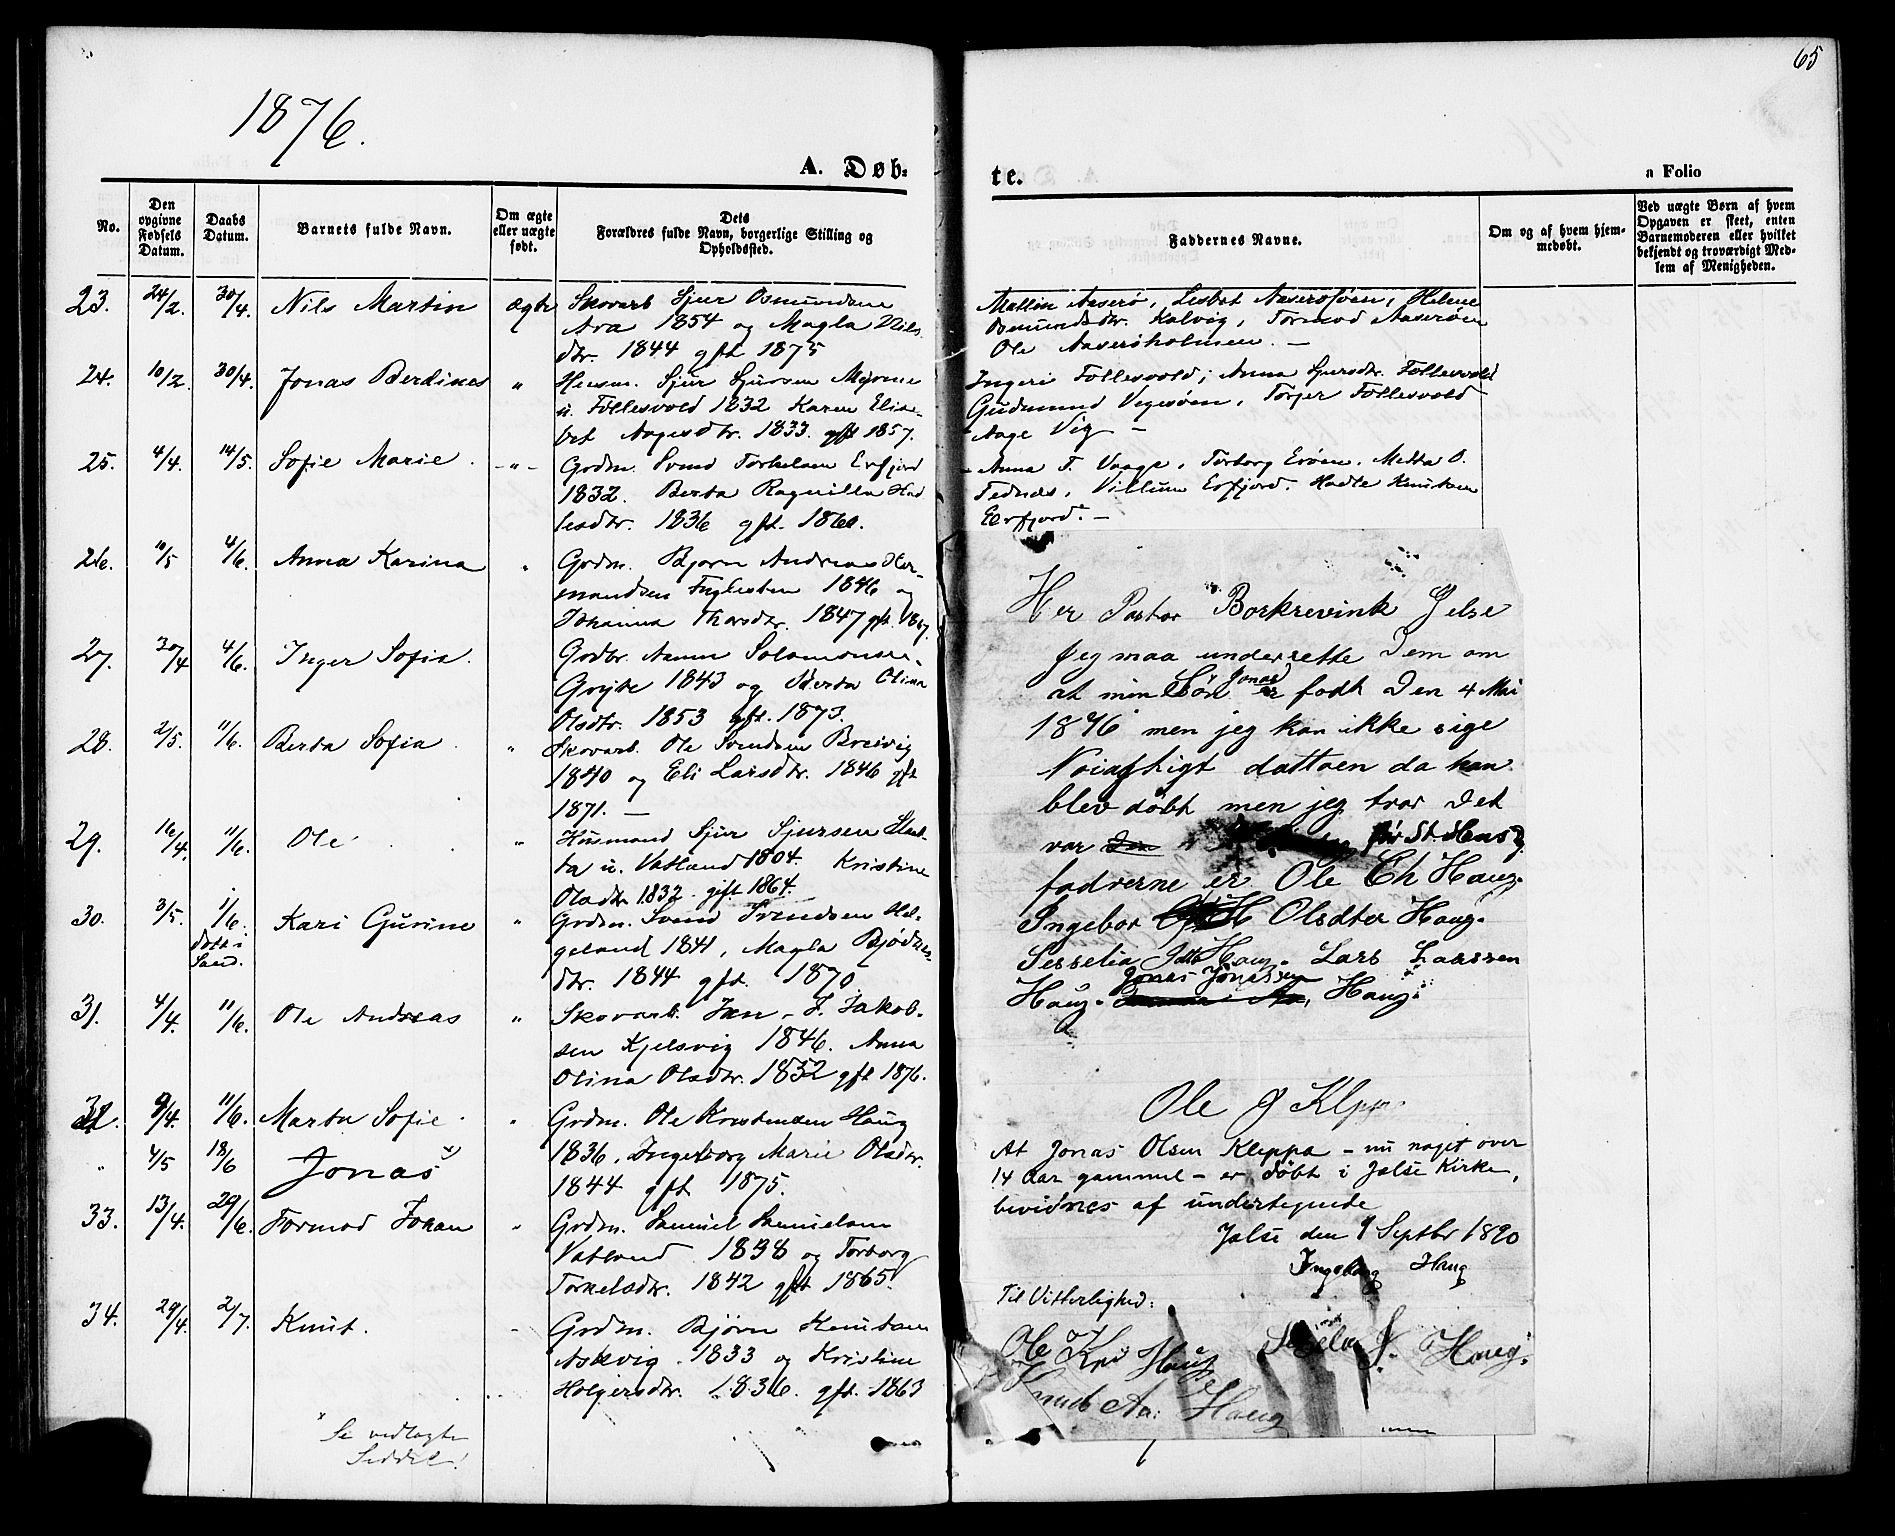 1876.
A. Døb-
No.
Den opgivne Fødsels Datum.
Daabs Datum.
Barnets fulde Navn.
Om ægte eller uægte født.
Dets
Forældres fulde Navn, borgerlige Stilling og
Opholdssted.
23. 24/2. 30/4. Nils Martin ægte Skovarb Sjur Osmundsen
Ara 1854 og Magla Nils
dtr. 1844 gft 1875
24. 10/2 30/4. Jonas Berdines " Husm. Sjur Sjursen
u. Follesvold 1832 Karen Elisa-
bet Aagesdtr. 1833. gft 1857.
25. 4/4. 14/5. Sofie Marie. -"- Grdm. Svend Torkelsen Erfjord
1832. Berta Ragnilla Had
lesdtr. 1836 gft. 1860.
26. 10/5 4/6. Anna Karina " Grdm. Bjørn Andreas Her-
mandsen 1846 og
Johanna Thorsdtr. 1847 gft. 1867.
27. 30/4 4/6. Inger Sofia. Grdbr. Aamen Salamonsen
1843 og Berta Olina
Olsdtr. 1853 gft. 1873.
28. 2/5. 11/6. Berta Sofia. " Skovarb. Ole Svendsen Breivig
1840 og Eli Larsdtr. 1846 gft
1871. —
29. 16/4. 11/6. Ole " Husmand Sjur Sjursen
u. Vatland 1804. Kristine
Olsdtr 1832. gift 1864.
30. 3/5. 1/6. døbt i Sand. Kari Gurine " Grdm. Svend Svendsen Hel-
geland 1841, Magla
dtr. 1844 gft. 1870
31. 4/4. 11/6. Ole Andreas " Skovarb. Jan J. Jakob-
sen Kjelsvig 1846. Anna
Olina Olsdtr. 1852 gft 1876.
32. 9/4. 11/6. Marta Sofie. " Grdm. Ole Kristensen Haug
" 4/5 18/6 Jonas x) 1836. Ingeborg Marie Olsdtr.
1844 gft 1875.
33. 13/4. 29/6. Tormod Johan " Grdm. Samuel Samuelsen
Vatland 1838 og Torborg
Torkelsdtr. 1842 gft 1865.
34. 29/4. 2/7. Knut. Grdm. Bjørn Knutsen
Askvig. 1833 og Kristine
Holgersdtr. 1836. gft. 1863
x Se vedlagte
Seddel!
65
te.
a Folio
Faddernes Navne.
Om og af hvem hjem-
medøbt.
Ved uægte Børn af hvem
Opgaven er skeet, enten
Barnemoderen eller hvilket
bekjendt og troværdigt Med-
lem af Menigheden.
Aaserø, Lisbet Helene
Osmundsdtr. Kalvig, Tormod Aaserøen
Ole Aaserøholmen. —
Ingeri Follesvold; Anna Sjursdtr. Follesvold
Gudmund Vegesøen, Torger Follesvold
Aage Vig —
Anna T. Vaage, Torborg Erøen. Metta O.
Tednæs, Villum Erfjord. Hadle Knutsen
Erfjord. —
Her Pastor Borkrevink Jelse
Jeg maa underrette Dem om
at min Søn Jonas er fodt Den 4 Mai
1876 men jeg kan ikke sige
Noiagtigt dattoen da han
blev døbt men jeg tror Det
var før St. Hans
fadrerne er Ole Ch Haug.
Ingebor H Olsdter Haug.
Sesselia Haug. Lars Larssen
Haug. Jonas Jonassen Haug.
Ole J Klpp
At Jonas Olsen Kleppa – nu noget over
14 Aar gammel – er døbt i Jelse Kirke,
bevidnes af undertegnede
Jelse den 9 Septbr 1890
Ingeborg Haug
Til Vitterlighed:
Ole Kr Haug J. Haug.
Knud Aa: Haug